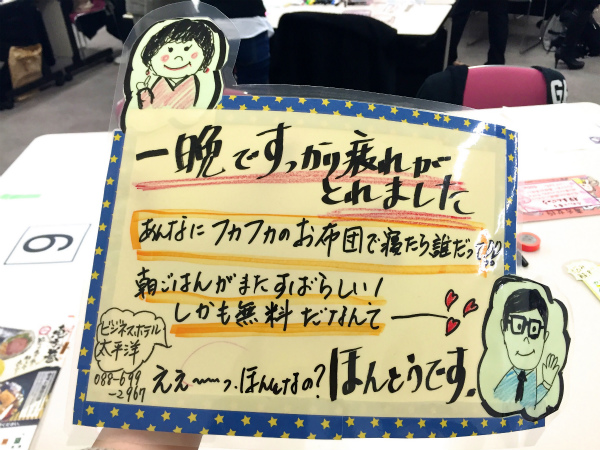 一晩ですっかり疲れが
とれました
あんなにフカフカのお布団で寝たら誰だって
朝ごはんがまたすばらしい!
しかも無料だなんて
ビジネスホテル
太平洋
088-699
-2967
ええ〜〜っ、ほんとなの?ほんとうです。
6